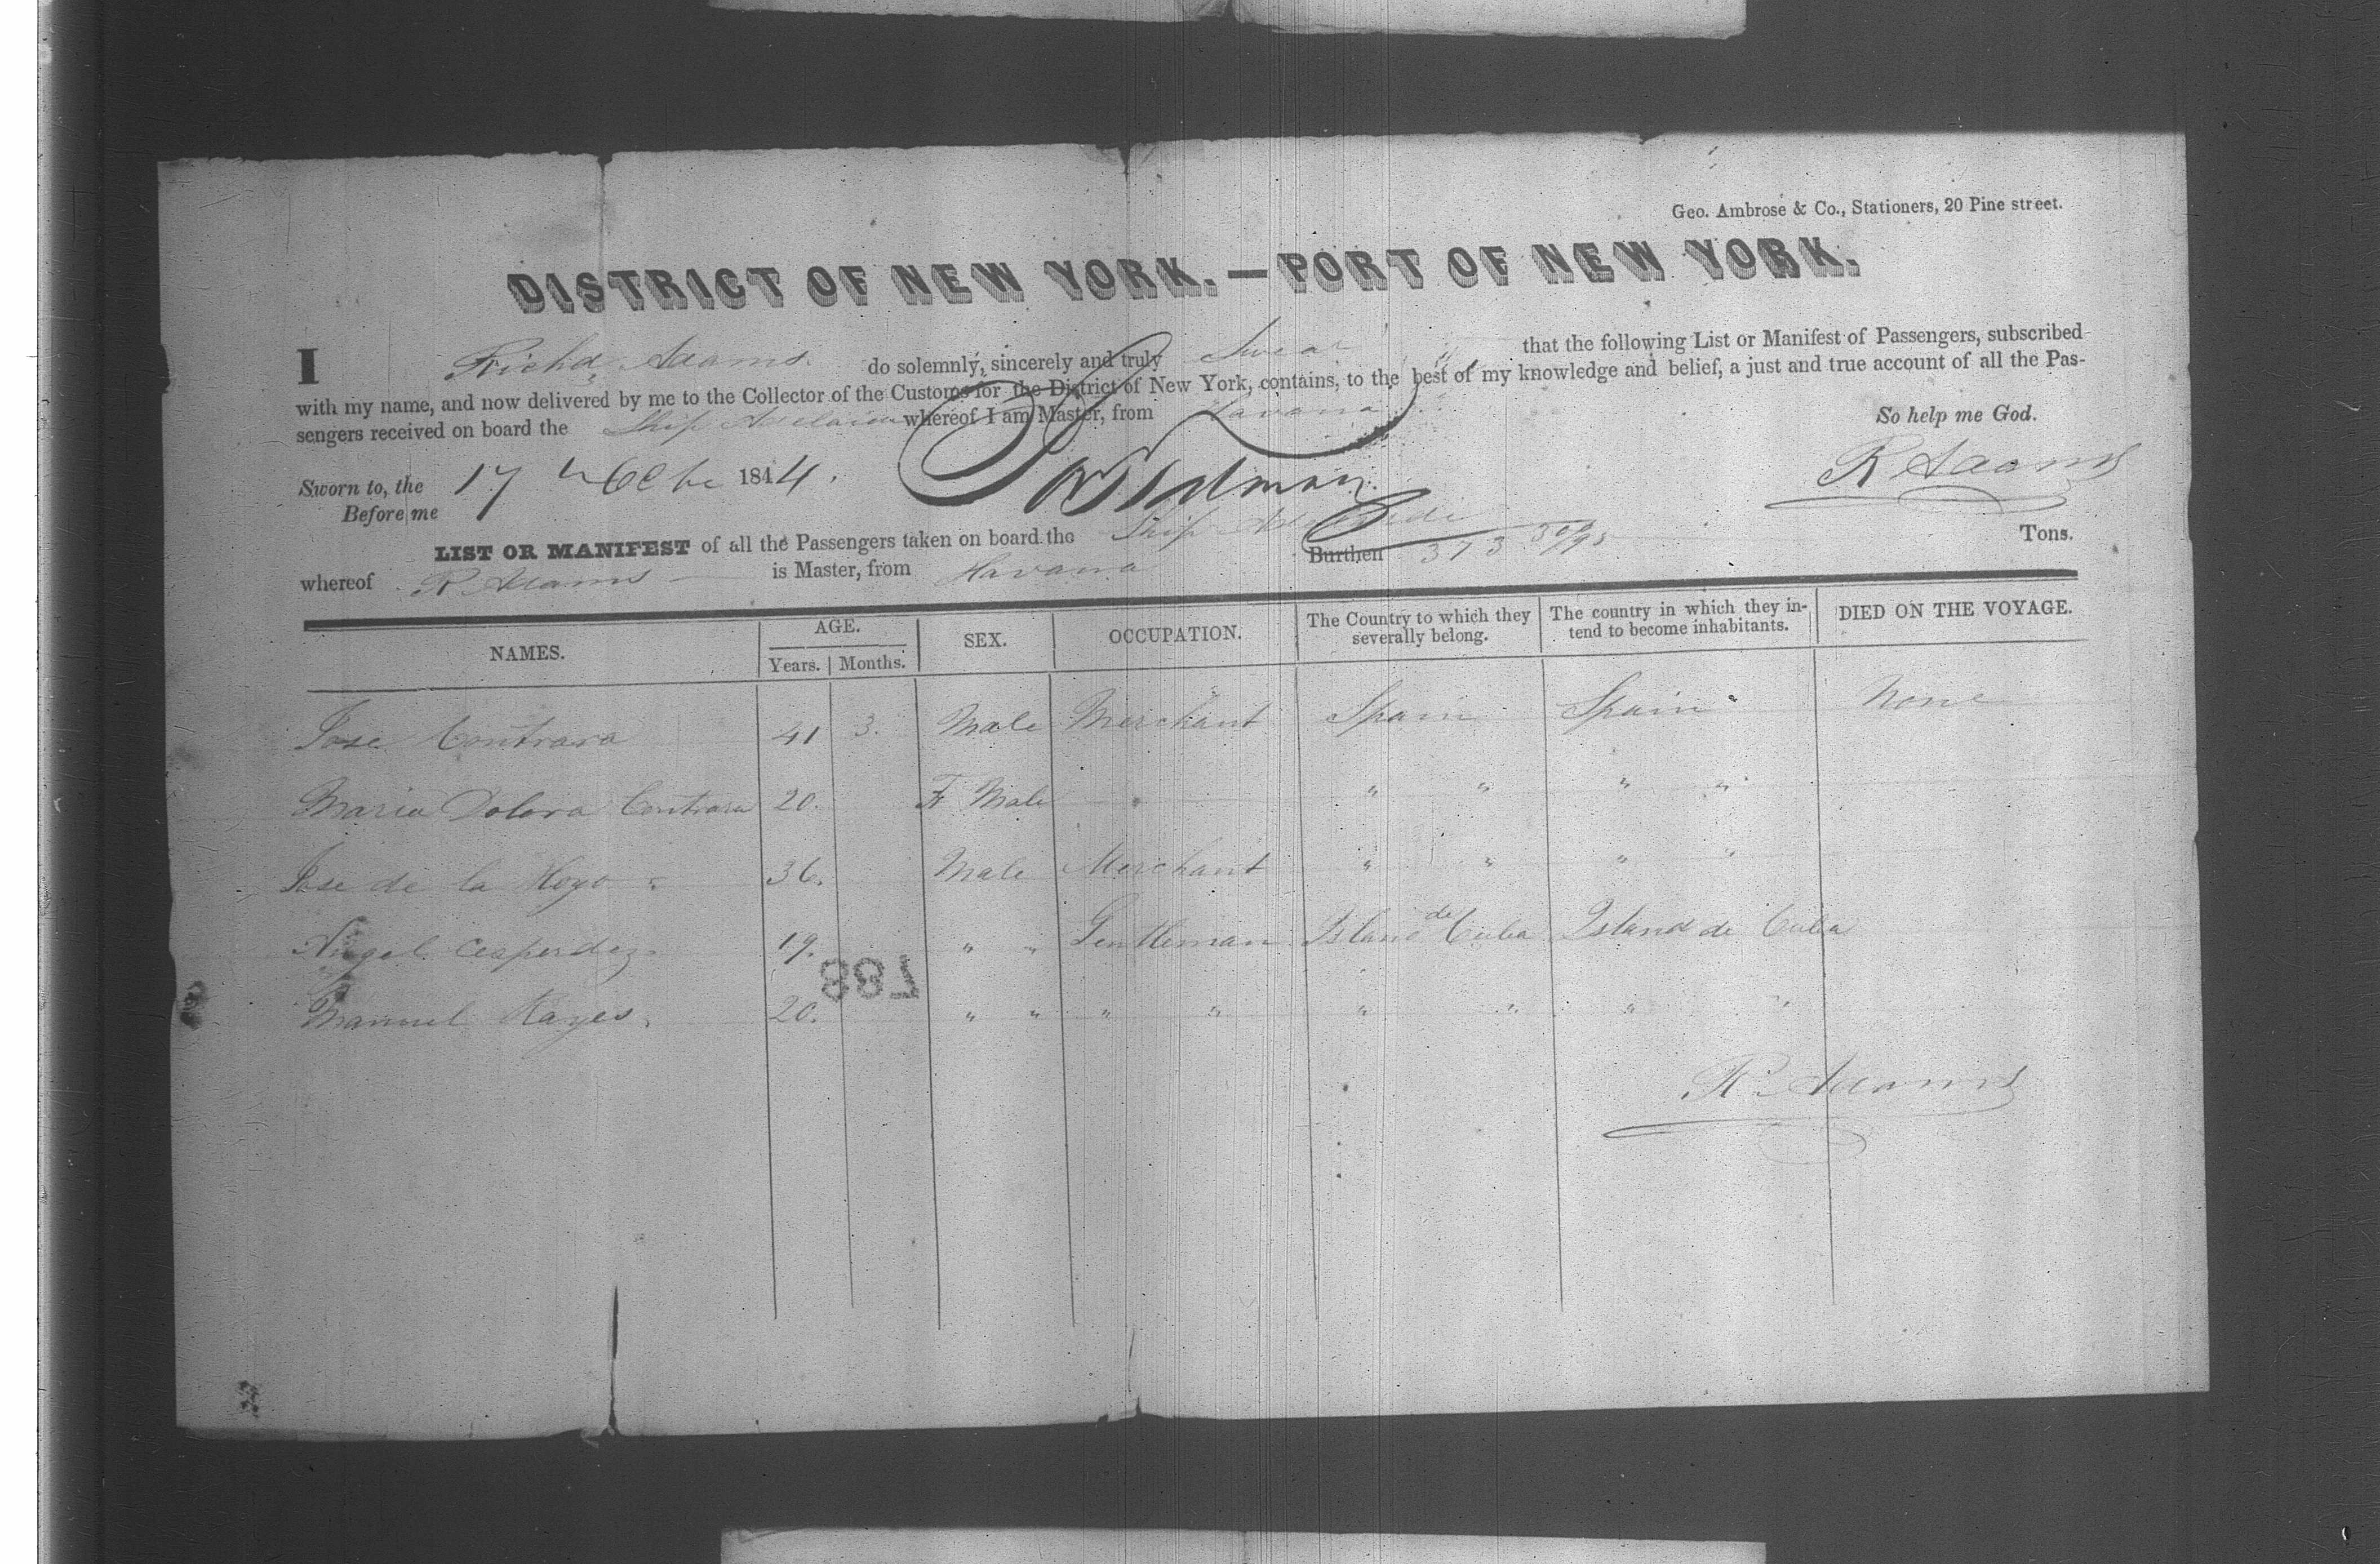 Geo. Ambrose & Co., Stationers, 20 Pine street.
DISTRICT OF NEW YORK.—PORT OF NEW YORK.
I Richd Adams do solemnly, sincerely and truly Swear that the following List or Manifest of Passengers, subscribed
with my name, and now delivered by me to the Collector of the Customs for the District of New York, contains, to the best of my knowledge and belief, a just and true account of all the Pas-
sengers received on board the Ship whereof I am Master, from Havana
So help me God.
Sworn to, the 17 1844.
R Adams
Before me
LIST OR MANIFEST of all the Passengers taken on board the Ship Burthen 373 30/95 Tons.
whereof R Adams is Master, from Havana
NAMES. AGE. SEX. OCCUPATION. The Country to which they severally belong. The country in which they in- tend to become inhabitants. DIED ON THE VOYAGE.
Years. Months.
Jose Contrara 41 3. Male Merchant Spain Spain None
Maria Dolora Contrara 20. F Male " " " "
Jose de la Hoyo 36. Male Merchant " " " "
Angel Cesperdez 19. " " Gentleman Island de Cuba Island de Cuba
788
Manuel Hayes 20. " " " " " " " "
R Adams